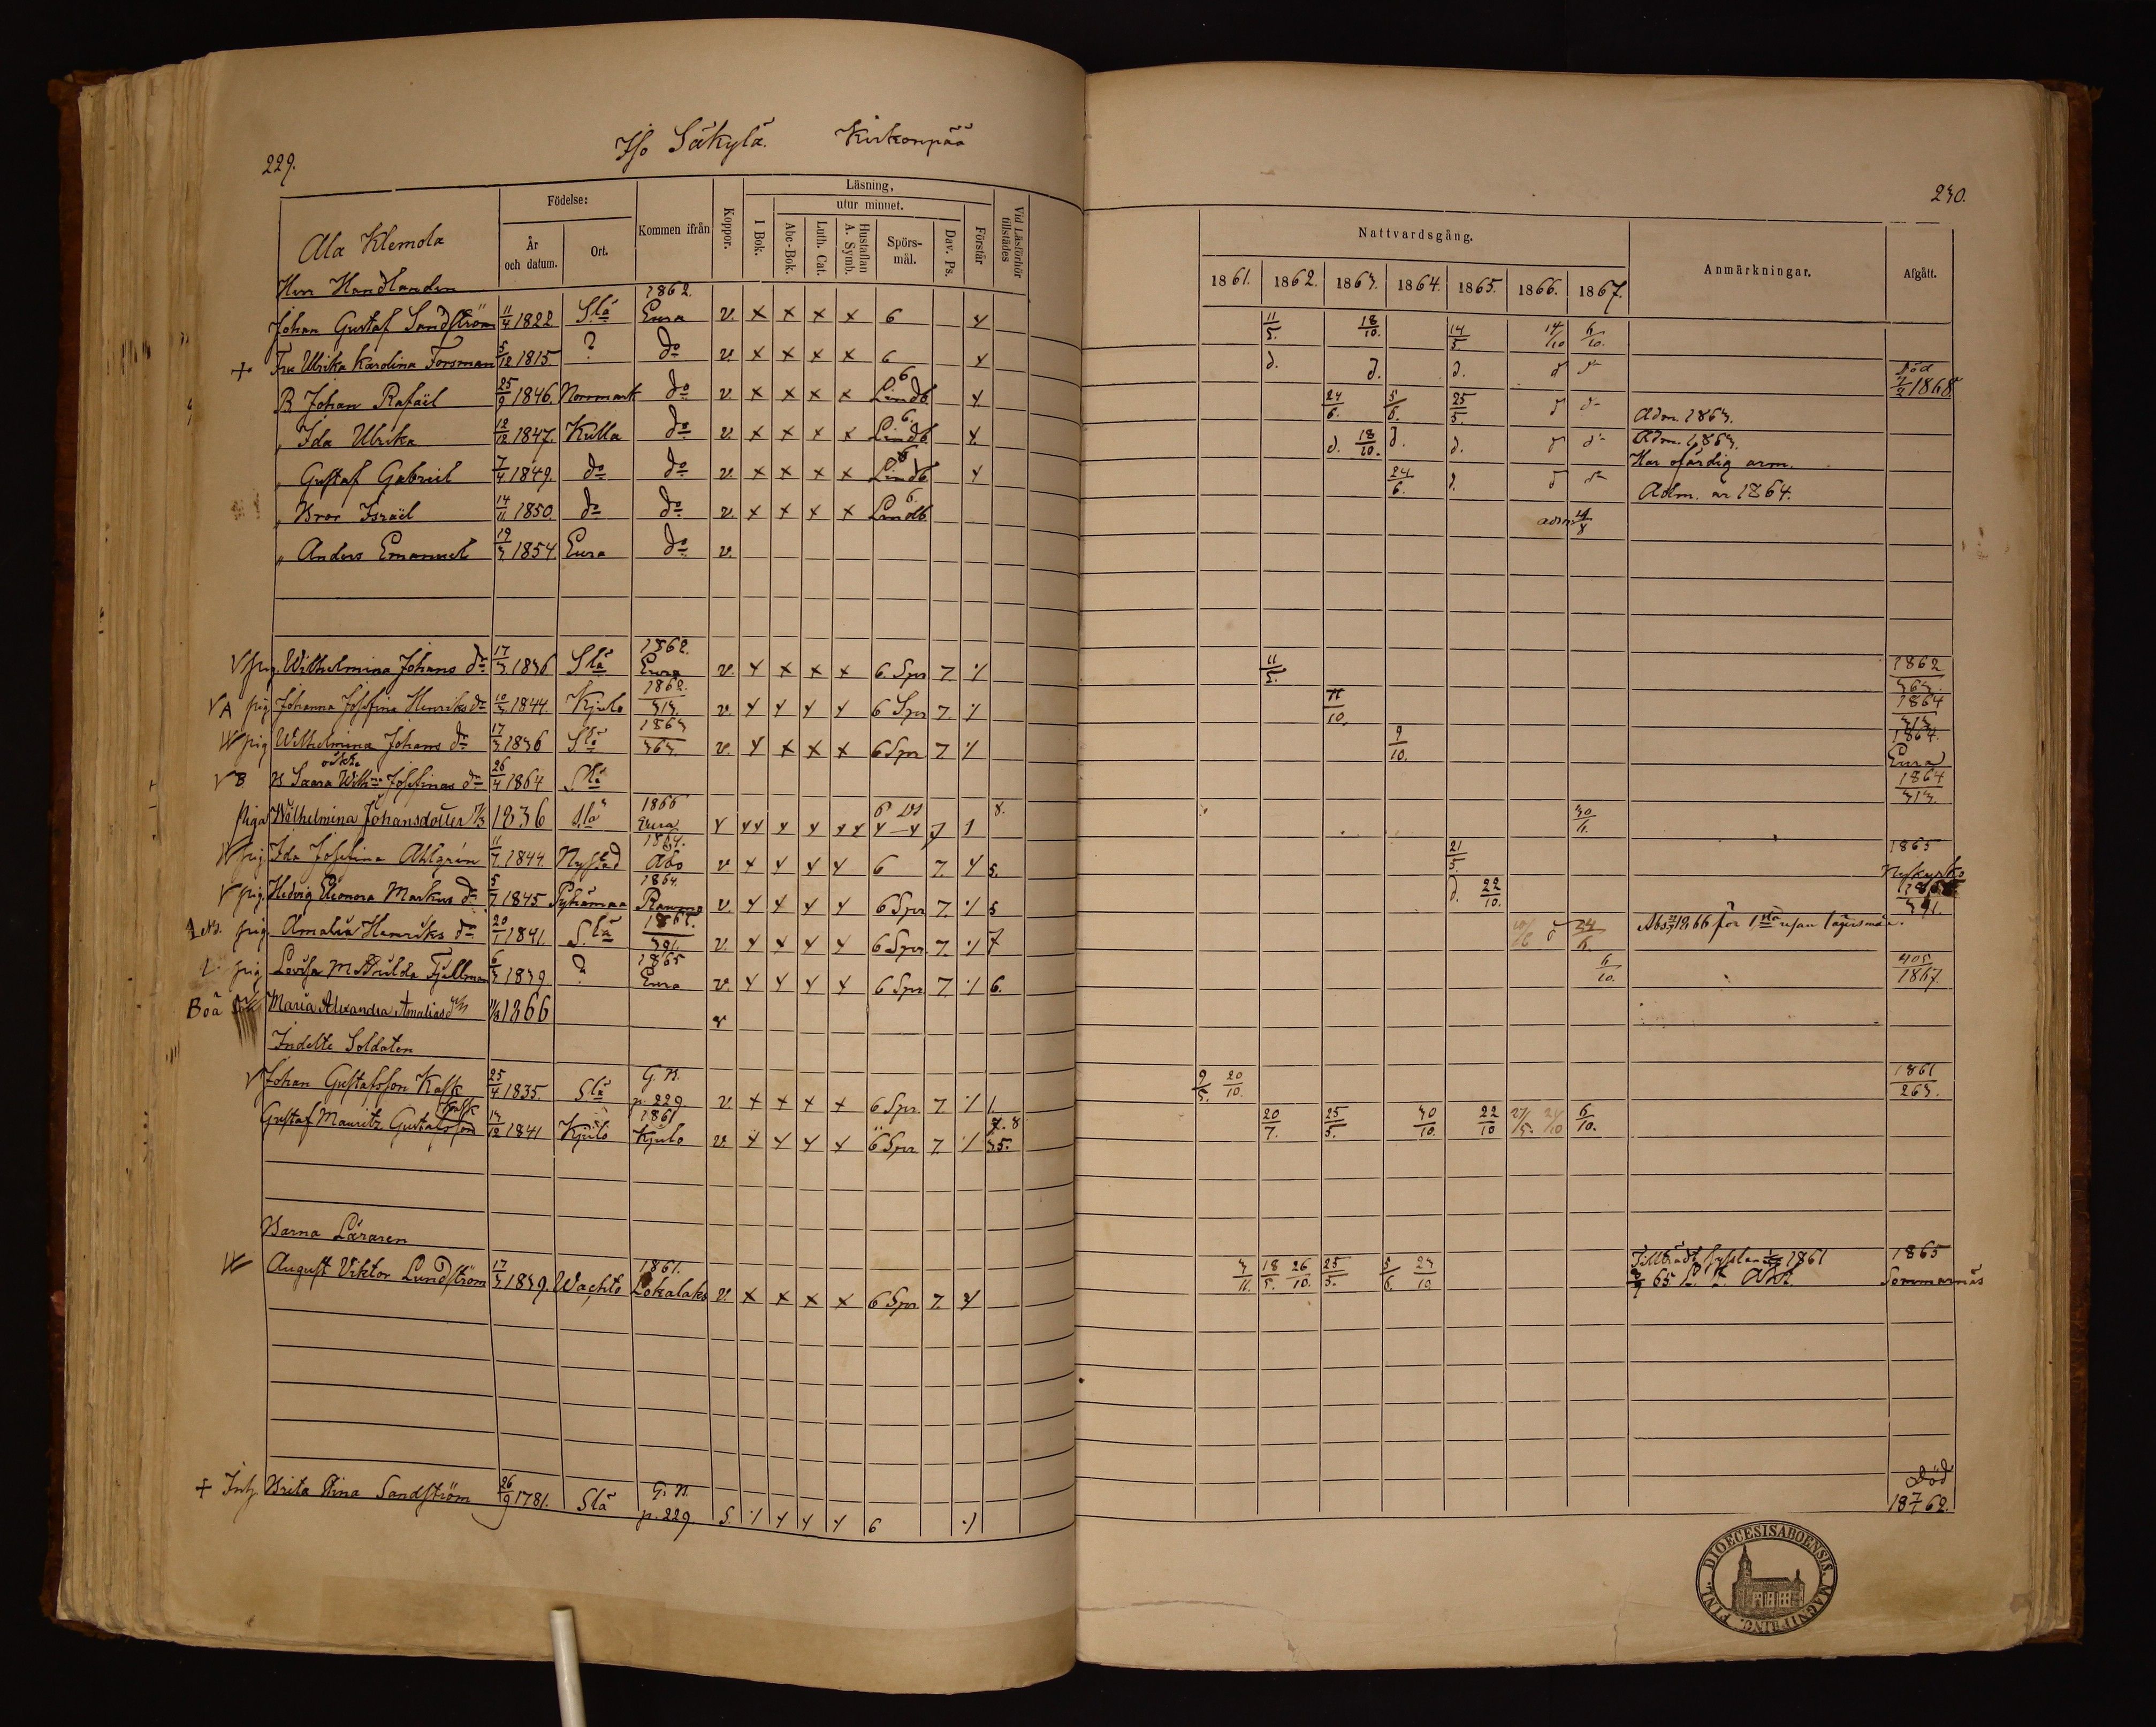 229.
Iso Säkylä. Kirkonpää
Ala Klemola
Födelse:
År och datum.
Ort.
Kommen ifrån
Koppor.
Läsning,
I Bok.
utur minnet.
Abc-Bok.
Luth. Cat.
Hustaflan A. Symb.
Spörs-mål.
Dav. Ps.
Förstår
Vid Läsförhör tillstädes
Herr Handlanden
Johan Gustaf Sandström 11/4 1822 Slä 1862. Eura v. x x x x 6
+ Fru Ulrika Karolina Forsman 5/12 1815. ? do v. x x x x 6
B Johan Rafaël 25/9 1846 Norrmark do v x x x x 6 Lindb.
" Ida Ulrika 12/12 1847. Kulla do v. x x x x 6. Lindb.
" Gustaf Gabriel 7/4 1849. do do v. x x x x 6 Lindb
" Bror Israël 14/11 1850. do do v. x x x x 6. Lindb.
" Anders Emanuel 19/3 1854 Eura do v.
V pig. Wilhelmina Johans dr 17/3 1836 Slä 1862. Eura v. x x x x 6. Spr 7
V A pig Johanna Josefina Henriks dr 10/3 1844. Kjulo 1862. 313. v. 6 Spr 7.
pig Wilhelmina Johans dr 17/3 1836 Slä 1863 363. v. x x x x 6 Spr 7
V B oäkta B Saara Wilh:na Josefinas dr 26/4 1864 Slä
piga Wilhelmina Johansdotter 17/3 1836 Slä 1866 Eura 8.
pig Ida Josefina Ahlgrén 11/7 1844. Nystad 1864. Åbo v 6 7. 5.
V pig. Hedvig Eleonora Markus dr 5/7 1845 Pyhämaa 1864. Raumo v. 6 Spr 7. 5
pig. Amalia Henriks dr 20/7 1841. Slä 1865. 391. v. 6 Spr. 7. 7
V. pig Lovisa Mathilda Fjellman 6/3 1839. ? 1865 Eura v. 6 Spr 7 6.
Maria Alexandra Amaliasdtr 1866
Indelte Soldaten
V Johan Gustafsson Kask 25/4 1835. Slä G. B. p. 229 v. x x x x 6 Spr. 7. 1.
Gustaf Mauritz Gustafsson Kask 13/12 1841 Kjulo 1861 Kjulo v. 6 Spr 7. 7. 8 35.
Barna Läraren
August Viktor Lundström 17/3 1839. Wachto 1861. Lokalaks v. x x x x 6 Spr 7.
+ Inh. Brita Stina Sandström 26/9 1781. Slä G. B. p. 229. S. 6
230.
Nattvardsgång.
1861. 1862. 1863. 1864. 1865. 1866. 1867.
Anmärkningar.
Afgått.
11/5. 18/10. 14/5 14/10 6/10.
d. d. d. d d Död 1868.
24/6. 5/6. 25/5. d d Adm. 1863.
d. 18/10. d. d. d d Adm. 1863. Har ofärdig arm.
24/6. d. d d Adm. är 1864.
adm
11/5. 1862 363.
11/10. 1864 313.
9/10. 1864. Eura
1864 313.
30/6.
21/5. 1865 Nykyrko
d. 22/10. 391.
24/6 Abs. 1866 för 1sta resan lägersmål.
6/10. 405 1867.
9/5. 20/10. 1861 263.
20/7. 25/5. 30/10. 22/10 27/5. 21/10 6/10.
3/11. 18/5. 26/10. 25/5. 5/6. 23/10 Tillträdt sysslan 1861 1865 Sommarnäs
Död 18 7/4 62.
FINL. DIOECESIS ABOENSIS. MAGNI PRINC.